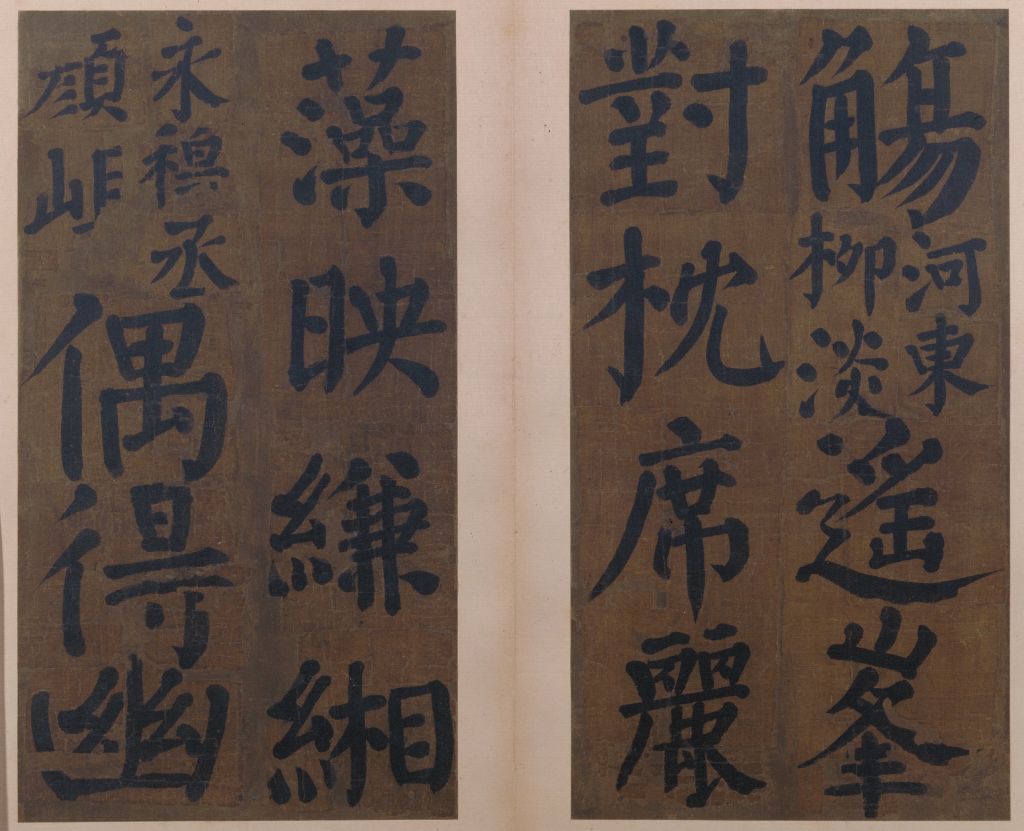 觴
河東
柳淡
遙峯
對枕席麗
藻映縑緗
永穆丞
顏峴
偶得幽